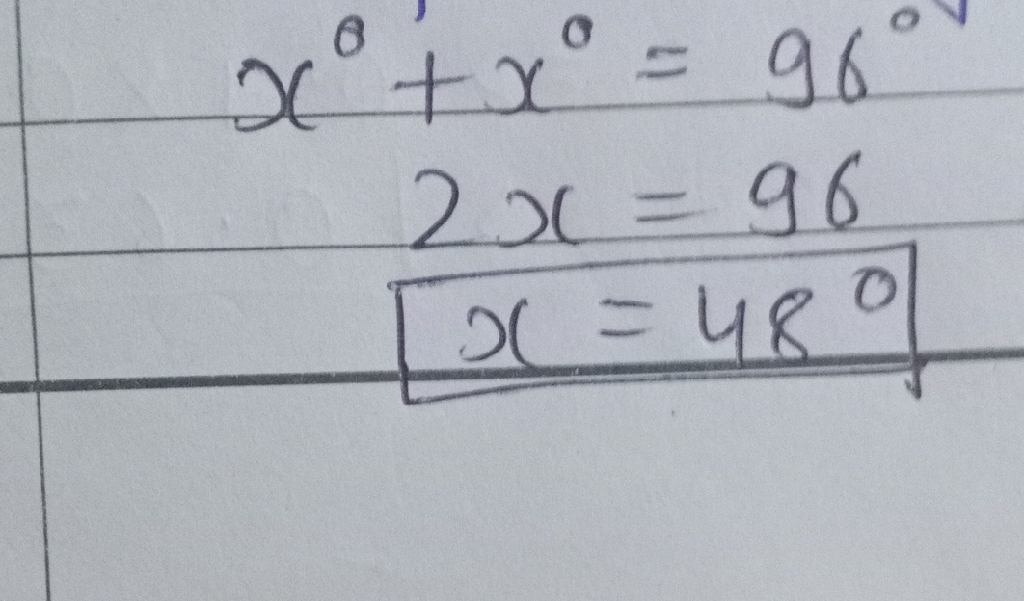 x° + x° = 96°
2x = 96
x = 48°